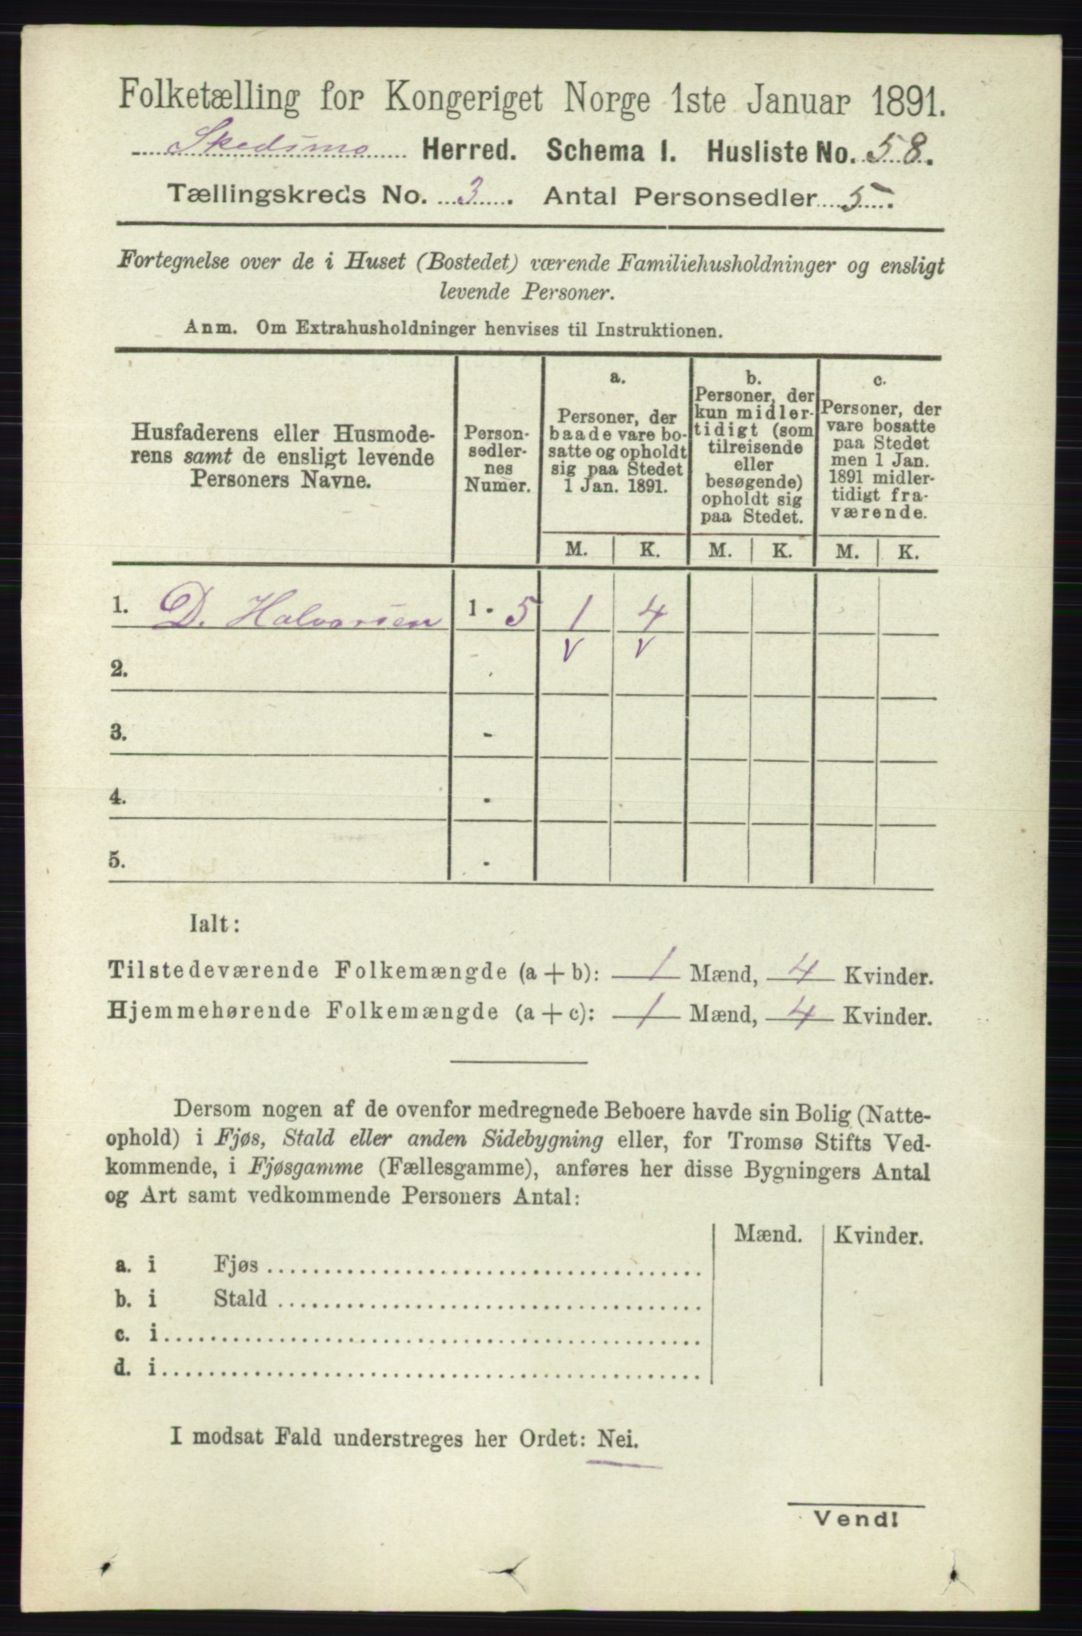 Folketælling for Kongeriget Norge 1ste Januar 1891.
Skedsmo Herred. Schema I. Husliste No. 58.
Tællingskreds No. 3. Antal Personsedler 5.
Fortegnelse over de i Huset (Bostedet) værende Familiehusholdninger og ensligt
levende Personer.
Anm. Om Extrahusholdninger henvises til Instruktionen.
Husfaderens eller Husmode-
rens samt de ensligt levende
Personers Navne.
Person-
sedler-
nes
Numer.
a.
Personer, der
baade vare bo-
satte og opholdt
sig paa Stedet
1 Jan. 1891.
b.
Personer, der
kun midler-
tidigt (som
tilreisende
eller
besøgende)
opholdt sig
paa Stedet.
c.
Personer, der
vare bosatte
paa Stedet
men 1 Jan.
1891 midler-
tidigt fra-
værende.
M. K. M. K. M. K.
1. D. Halvorsen 1 - 5 1 4
2. v v
3. -
4. -
5. -
Ialt:
Tilstedeværende Folkemængde (a + b): 1 Mænd, 4 Kvinder.
Hjemmehørende Folkemængde (a + c): 1 Mænd, 4 Kvinder.
Dersom nogen af de ovenfor medregnede Beboere havde sin Bolig (Natte-
ophold) i Fjøs, Stald eller anden Sidebygning eller, for Tromsø Stifts Ved-
kommende, i Fjøsgamme (Fællesgamme), anføres her disse Bygningers Antal
og Art samt vedkommende Personers Antal:
Mænd. Kvinder.
a. i Fjøs
b. i Stald
c. i
d. i
I modsat Fald understreges her Ordet: Nei.
Vend!